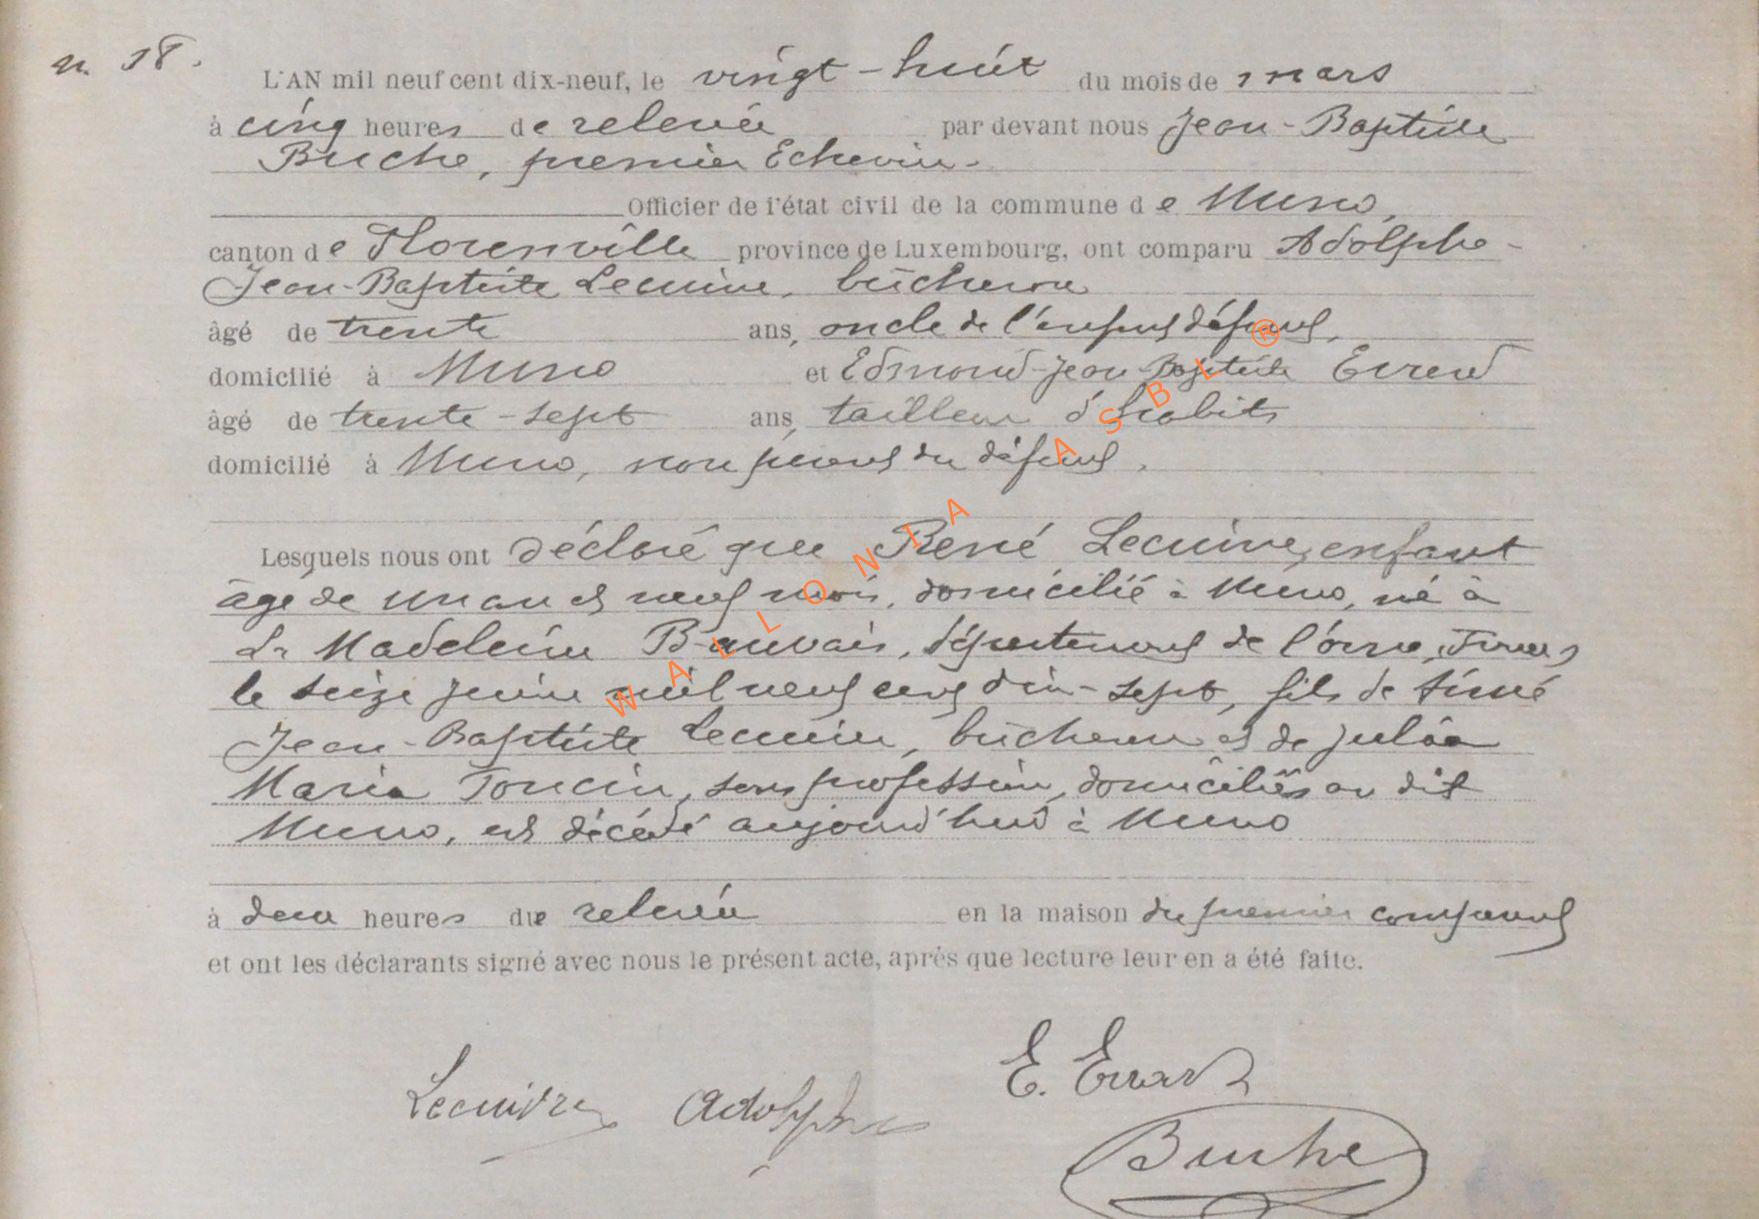 n. 18.
L'AN mil neuf cent dix-neuf, le vingt-huit du mois de mars
à cinq heures de relevée par devant nous Jean-Baptiste
Buche, premier Echevin.
Officier de l'état civil de la commune de Muno,
canton de Florenville province de Luxembourg, ont comparu Adolphe-
Jean-Baptiste Lecuivre, bûcheron
âgé de trente ans, oncle de l'enfant défunt,
domicilié à Muno et Edmond-Jean-Baptiste Errard
âgé de trente-sept ans, tailleur d'habits
domicilié à Muno, non parent du défunt.
Lesquels nous ont déclaré que René Lecuivre, enfant
âgé de un an et neuf mois, domicilié à Muno, né à
La Madeleine Bouvais, département de l'orne, France,
le seize juin mil neuf cent dix-sept, fils de
Jean-Baptiste Lecuivre, bûcheron et de Julia
Maria Poncin, sans profession, domiciliés au dit
Muno, est décédé aujourd'hui à Muno
à deux heures de relevée en la maison du premier comparant
et ont les déclarants signé avec nous le présent acte, après que lecture leur en a été faite.
Lecuivre Adolphe
E. Errard
Buche
WALLONIA ASBL ®